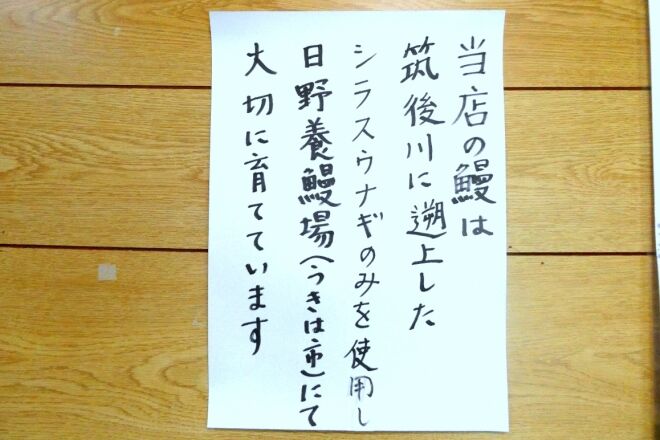 当店の鰻は
筑後川に遡上した
シラスウナギのみを使用し
日野養鰻場(うきは市)にて
大切に育てています